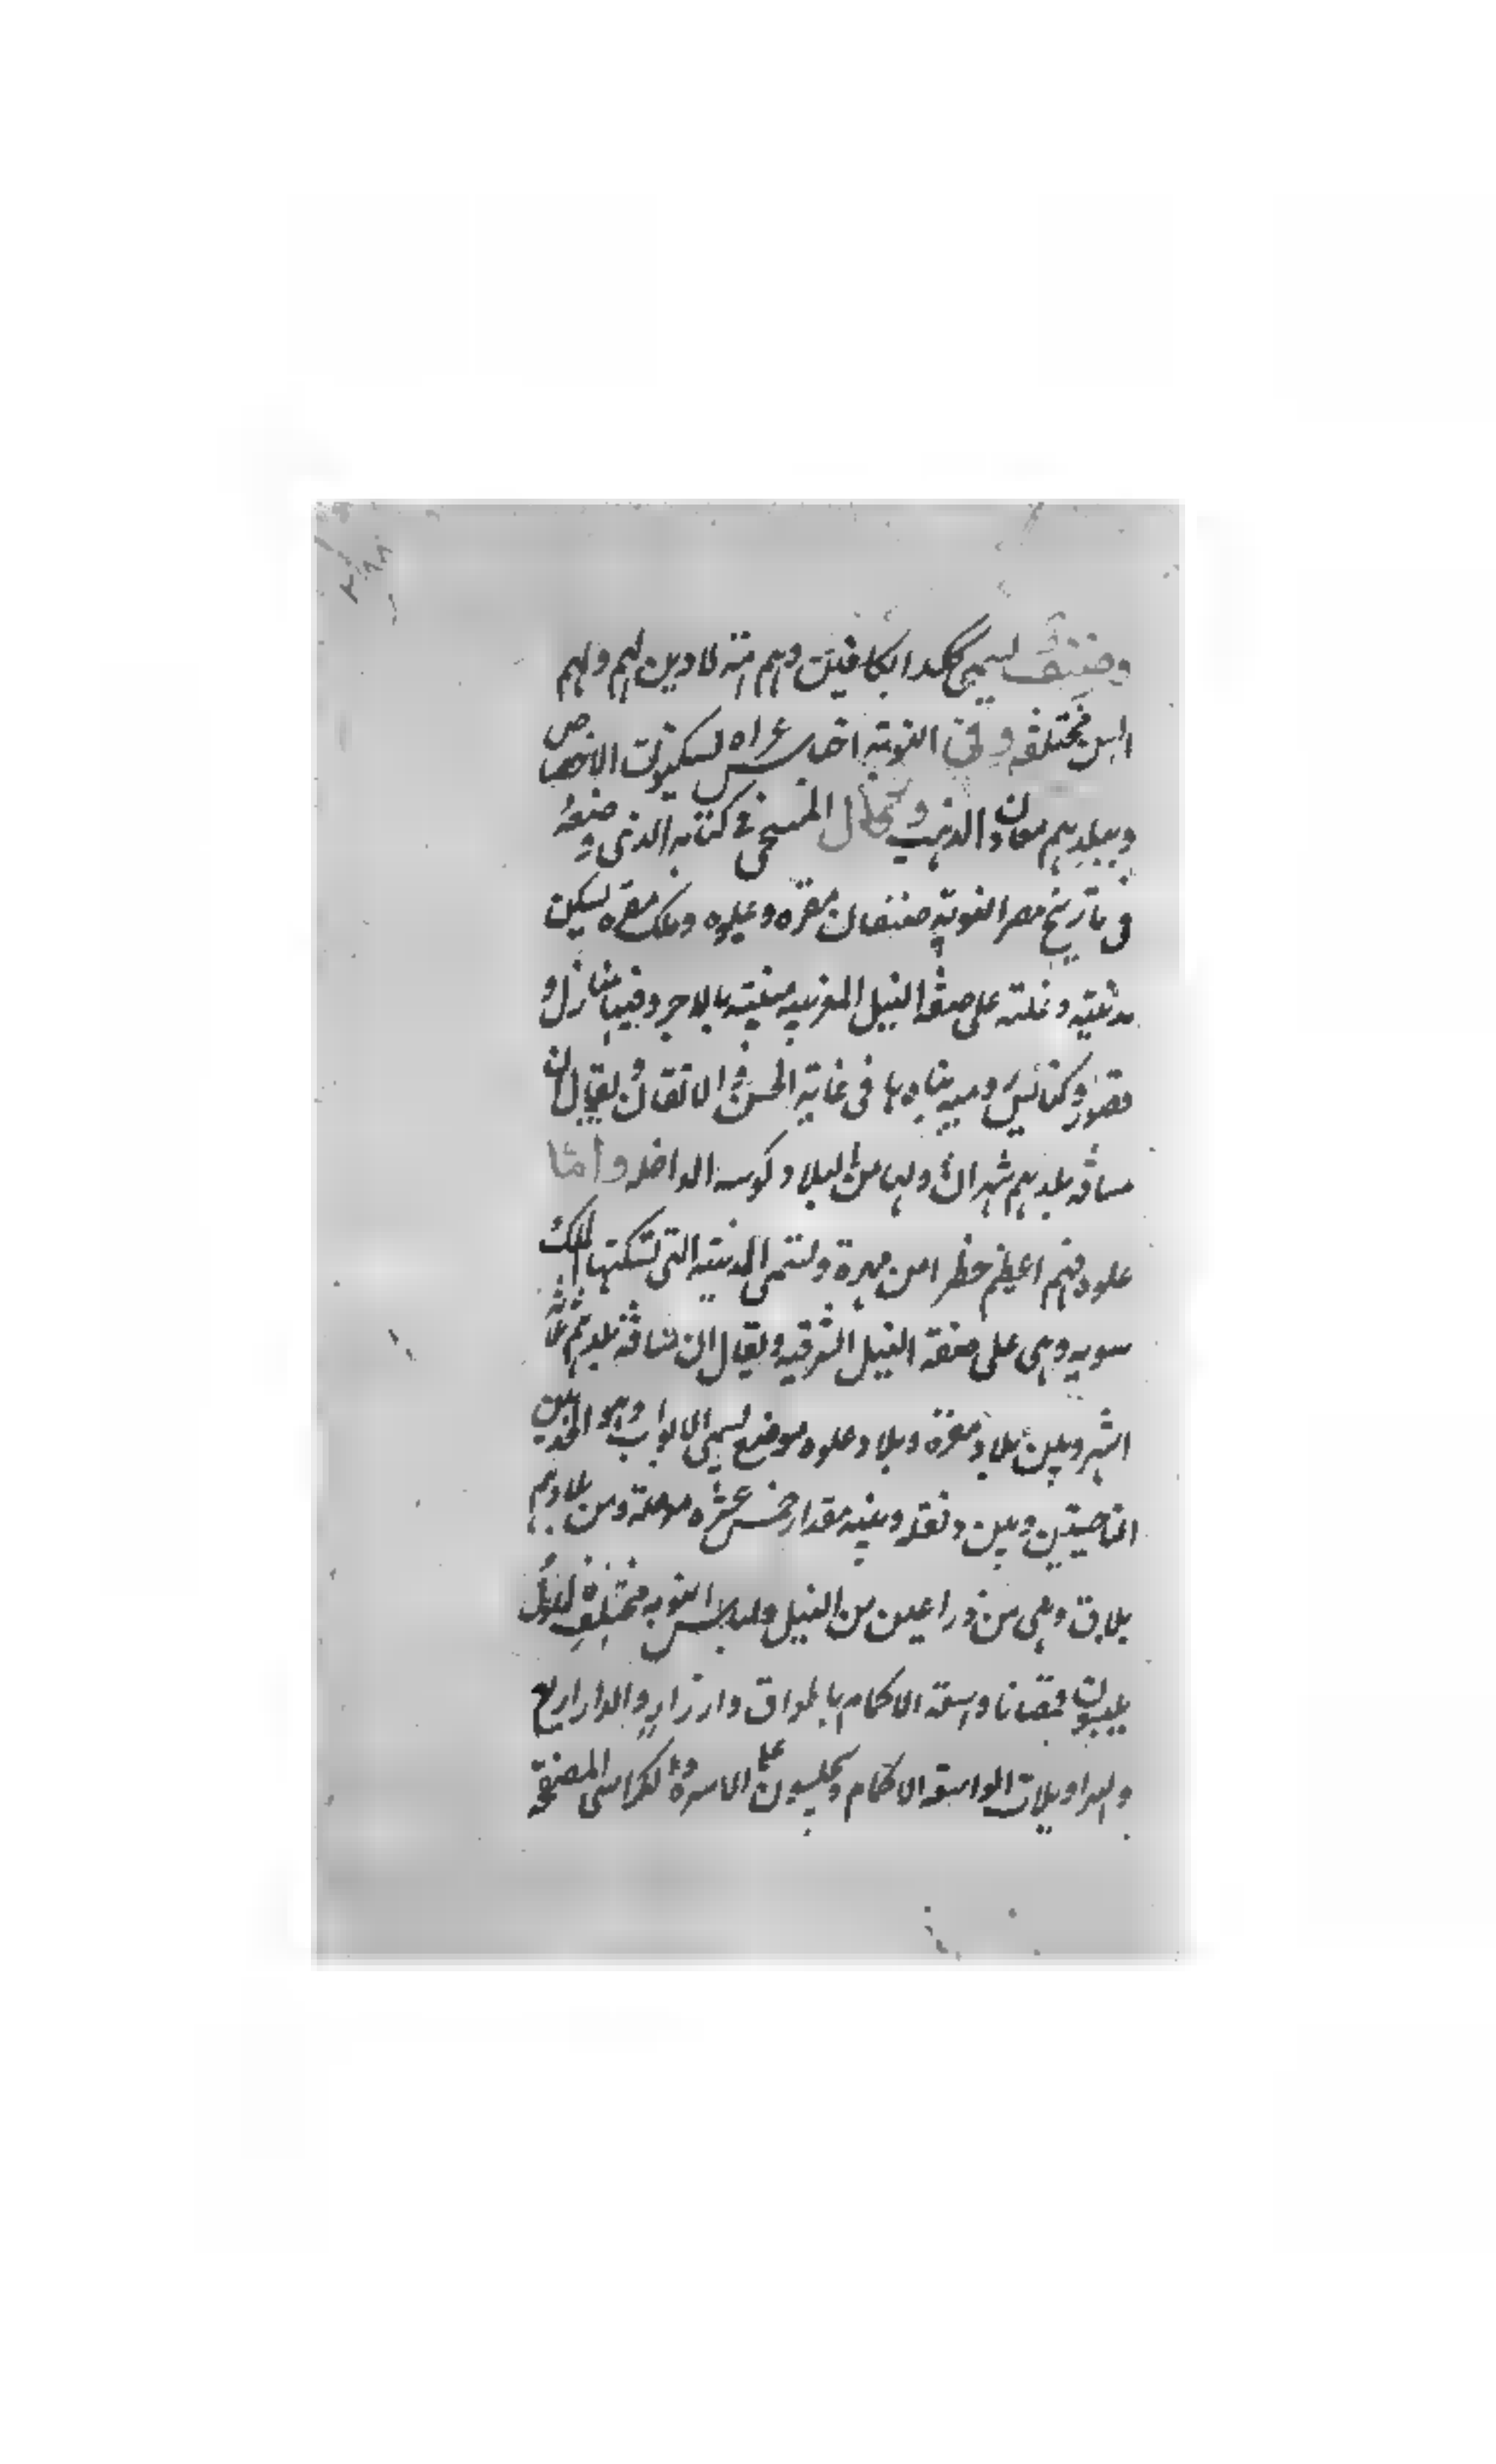 وصنف يسمى كلدا الكافين وهم امة لا دين لهم ولهم
السن مختلفه وفى النوبة اجناس عراه يسكنون الاخصاص
وببلدهم معادن الذهب وقال المسبحى فى كتابه الذى وضعه
فى تاريخ مصر النوبه صنفان مقره وعلوه وملك مقره يسكن
مدينته دنقلة على ضفه النيل الغربيه مبنيته بالاجر وفيها منازل و
قصور وكنائس وميه بناوها فى غاية الحسن والاتقان ويقال ان
مسافه بلدهم شهران ولها من البلاد كوسه الداخله واما
علوه فهم اعظم خطرا من مقرة وتسمى المدينه التى تسكنها الملك
سوبه وهى على ضفة النيل الشرقيه ويقال ان مسافه بلدهم ثلثه
اشهر وبين بلاد مقرة وبلاد علوه موضع يسمى الابواب وهو الحد بين
الناحيتين وبين دنقله وبينه مقدار خمس عشره مرحلة ومن بلادهم
بلاق وهى بين ذراعين من النيل ولباس النوبه مختلفه الملوك
يلبسون قمصانا واسعة الاكمام بالطواق وازرار والدراريع
والسراويلات الواسعه الاكمام ويجلسون على الاسرة والكراسى المصنفحه